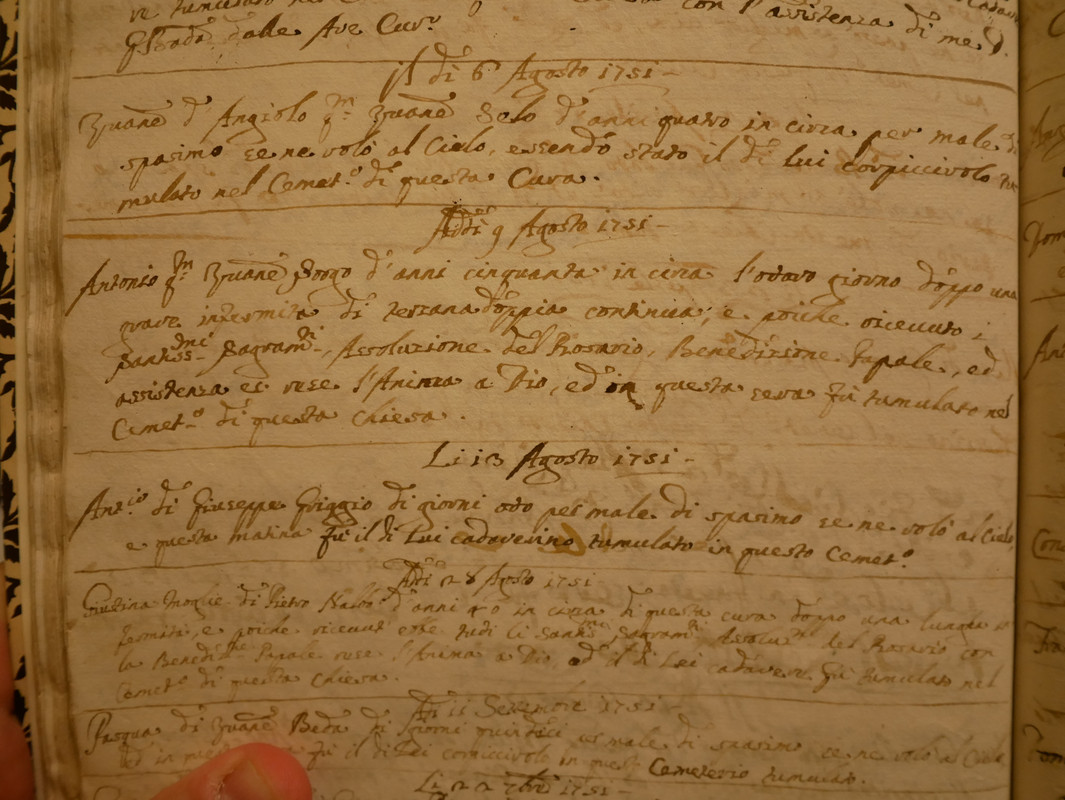 con l'assistenza di me
dalle Ave
il dì 6 Agosto 1751
Zuanè d'Angiolo qm Zuanè Selo d'anni quatro in circa per male di
spasimo se ne volò al Cielo, essendo stato il di lui corpiccivolo tu-
mulato nel Cemet.o di questa Cura.
Addì 9 Agosto 1751
Antonio qm Zuanè d'anni cinquanta in circa l'otavo giorno doppo una
grave infermità di terzana doppia continua, e poiche ricevuto i
Santiss.mi Sagram.ti, Assoluzione del Rosario, Benedizione Papale, ed
assistenza es rese l'Anima a Dio, ed in questa sera fù tumulato nel
Cemet.o di questa Chiesa.
Li 13 Agosto 1751
Ant.io di Giuseppe Griggio di giorni oto per male di spasimo se ne volò al Cielo,
e questa matina fù il di Lui cadaverino tumulato in questo Cemet.o
Addì 28 Agosto 1751
Giustina Moglie di Pietro d'anni 40 in circa di questa cura doppo una lunga in-
fermità, e poiche ricevut ebbe tutti li Santis.mi Sagram.ti Assoluz. del Rosario con
la Benediz.ne Papale rese l'Anima a Dio, ed il di Lei cadavere fù tumulato nel
Cemet.o di questa Chiesa.
Adì 11 Setembre 1751
Pasqua di Zuanè Beda di giorni quindeci es male di spasimo se ne volò al Cielo
ed in fù il di Lei corpiccivolo in quest Cemeterio tumulato.
Li 22 7bre 1751